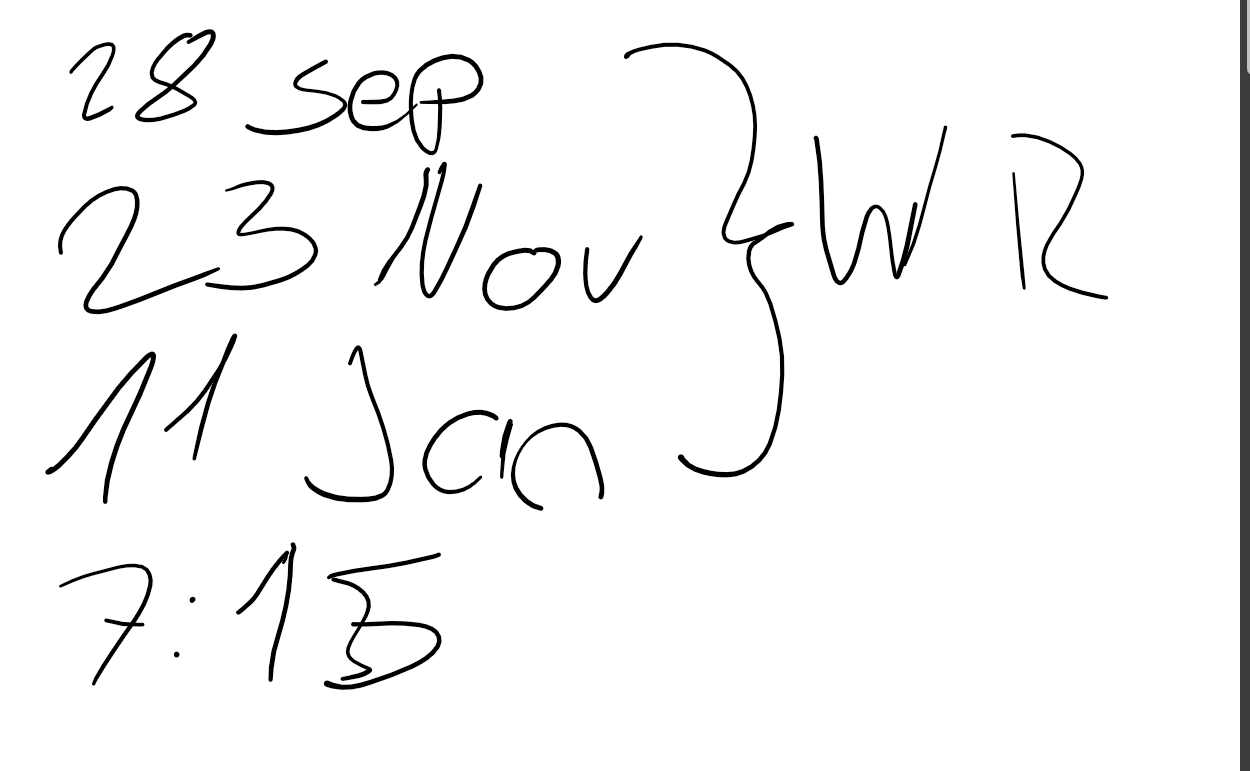 28 sep
23 Nov
11 Jan
WR
7:15